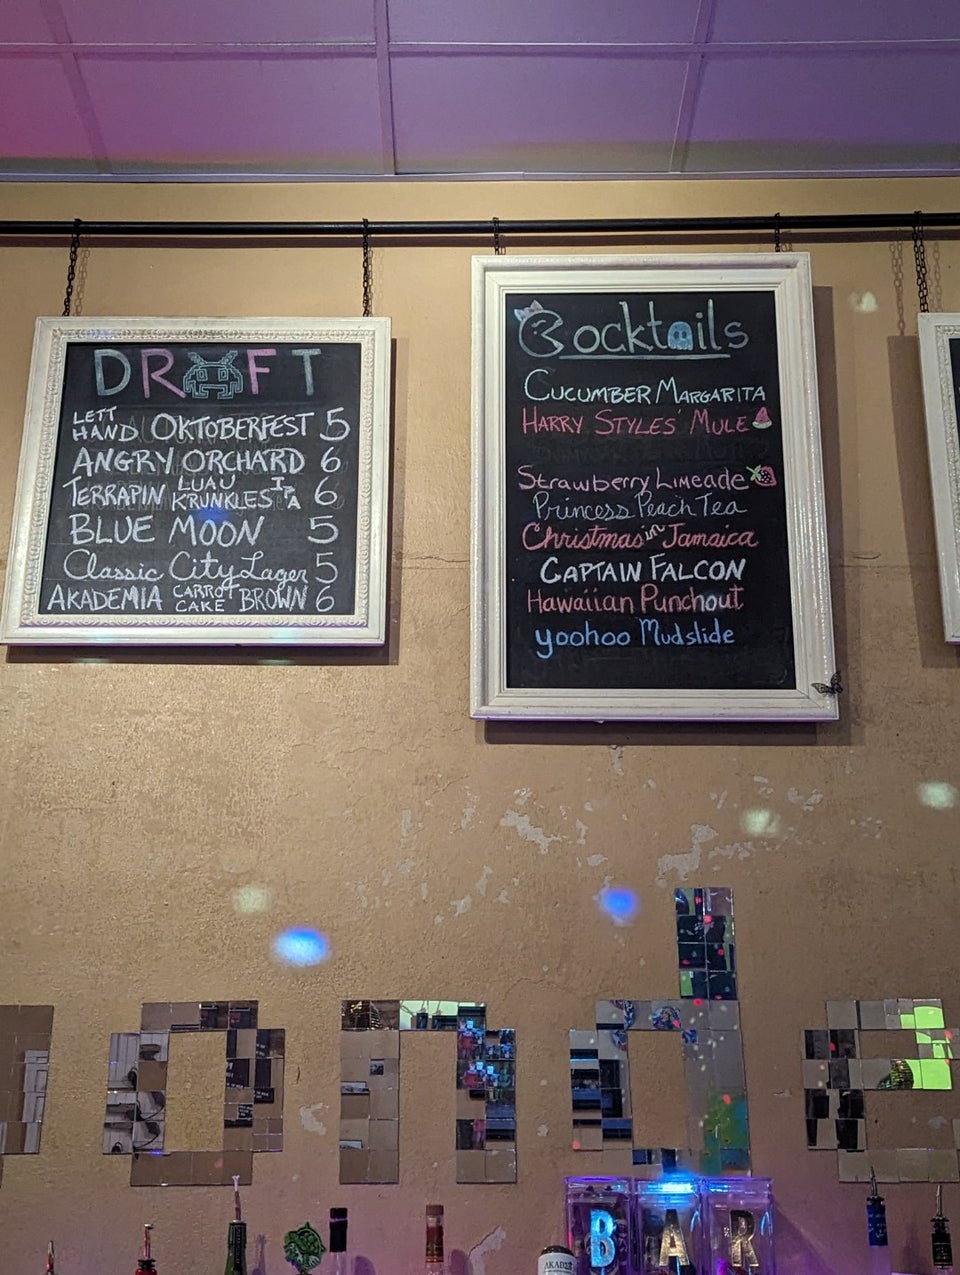 DRAFT
LEFT HAND OKTOBERFEST 5
ANGRY ORCHARD 6
TERRAPIN LUAU KRUNKLES IPA 6
BLUE MOON 5
Classic City Lager 5
AKADEMIA CARROT CAKE BROWN 6
Cocktails
CUCUMBER MARGARITA
HARRY STYLES' MULE
Strawberry Limeade
Princess Peach Tea
Christmas in Jamaica
CAPTAIN FALCON
Hawaiian Punchout
yoohoo Mudslide
onde
BAR